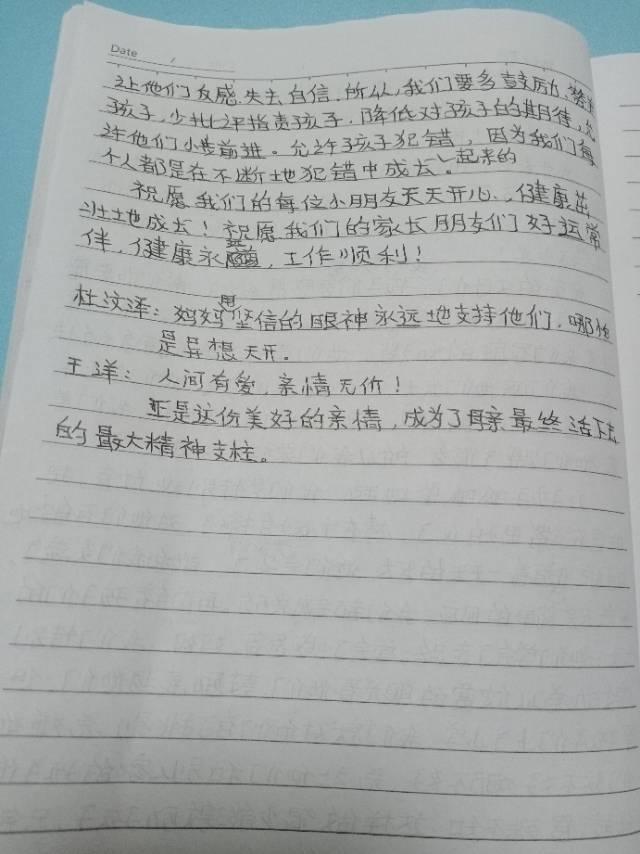 Date /
让他们反感.失去自信.所以,我们要多鼓励,赞美
孩子,少批评指责孩子.降低对孩子的期待,允
许他们小步前进。允许孩子犯错,因为我们每
个人都是在不断地犯错中成长一起来的
祝愿我们的每位小朋友天天开心,健康茁
壮地成长!祝愿我们的家长朋友们好运常
伴,健康永随,工作顺利!
杜汶泽:妈妈用坚信的眼神永远地支持他们,哪怕
是异想天开。
王洋:人间有爱,亲情无价!
正是这份美好的亲情,成为了母亲最终活下去
的最大精神支柱。